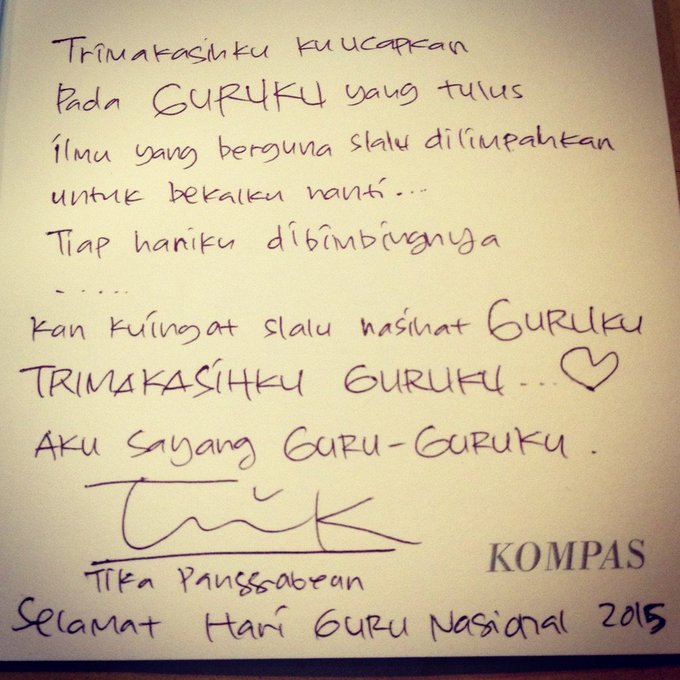 Trimakasihku kuucapkan
Pada GURUKU yang tulus
ilmu yang berguna slalu dilimpahkan
untuk bekalku nanti...
Tiap hariku dibimbingnya
......
kan kuingat slalu nasihat GURUKU
TRIMAKASIHKU GURUKU... ♡
AKU sayang GURU-GURUKU.
KOMPAS
Tika Panggabean
Selamat Hari GURU Nasional 2015